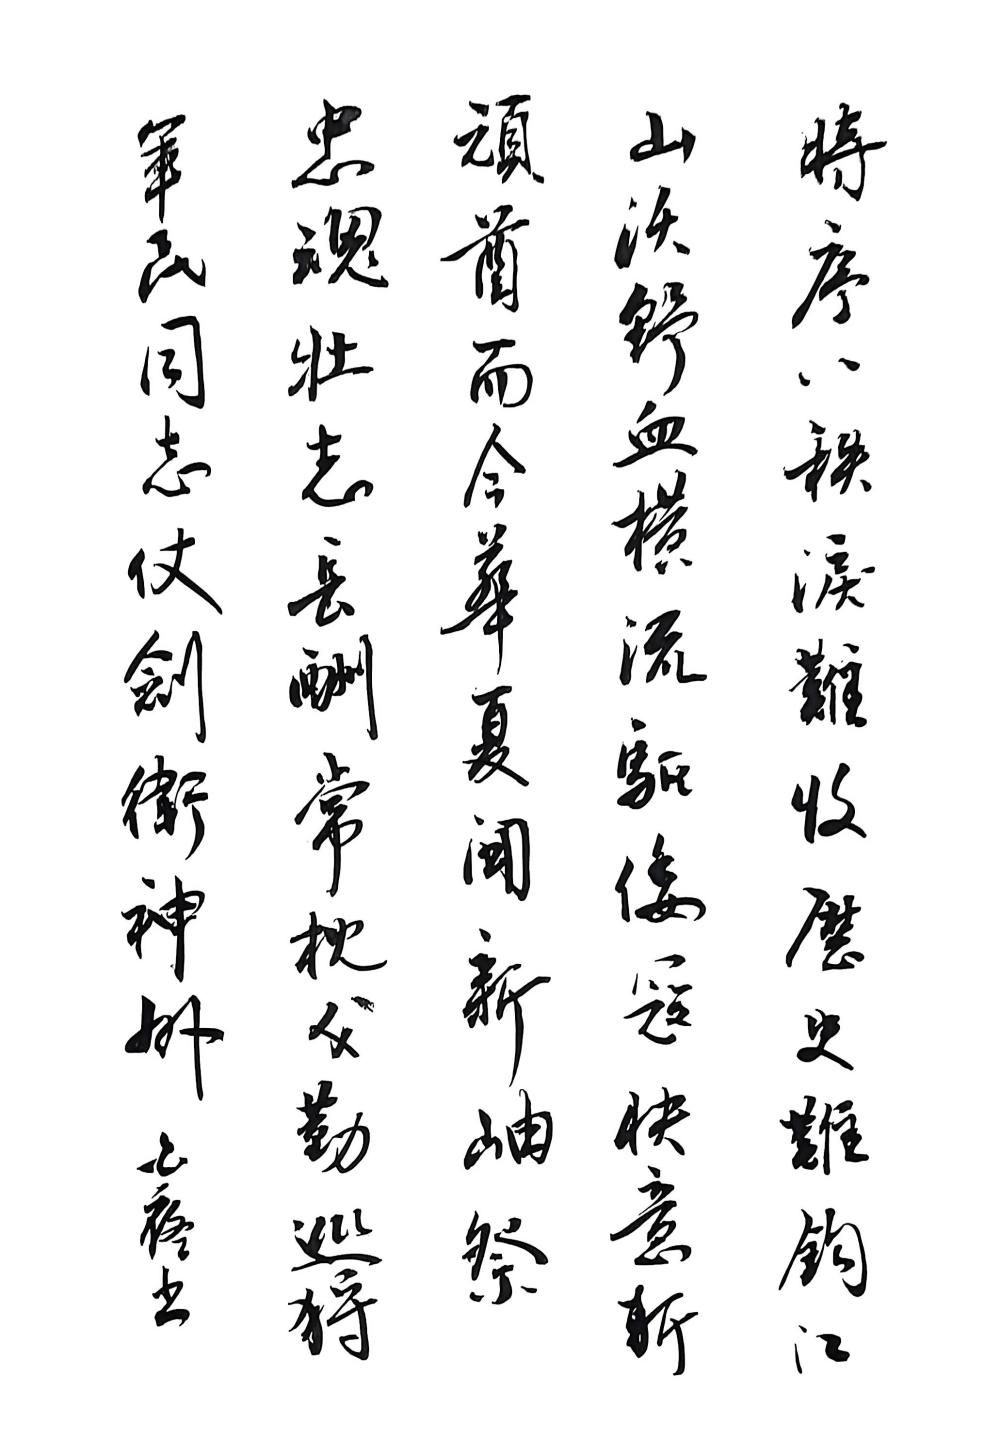 時序八秩淚難收歷史難鈞江
山沃野血橫流驅倭寇快意斬
頑酋而今華夏闖新岫祭
忠魂壯志長酬常枕戈勤巡狩
軍民同志仗劍衛神州
書